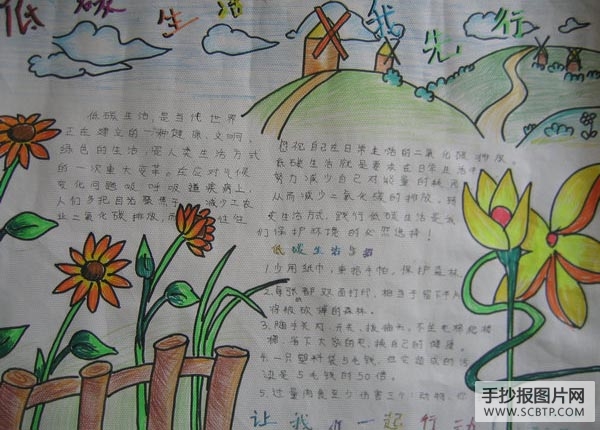 低碳生活 我先行
低碳生活,是当代世界
正在建立的一种健康、文明、
绿色的生活,是人类生活方式
的一次重大变革。在应对气候
变化问题
人们多把目光聚焦于 减少工农
业二氧化碳排放,而
自己在日常生活的二氧化碳排放。
低碳生活就是要求在日常生活中
努力减少自己对能量的耗
从而减少二氧化碳的排放。转
变生活方式,践行低碳生活是我
们保护环境的必然选择!
低碳生活
1.少用纸巾,重拾手帕,保护森林
2.每张都双面打印,相当于留下半片
将被砍掉的森林。
3.随手关灯、开关、拔插头,不坐电梯爬楼
梯,省下大家的电,换自己的健康。
4.一只塑料袋5毛钱,但它造成的污
染是5毛钱的50倍。
5.过量肉食至少伤害三个:动物、你
让我们一起行动
手抄报图片网
WWW.SCBTP.COM